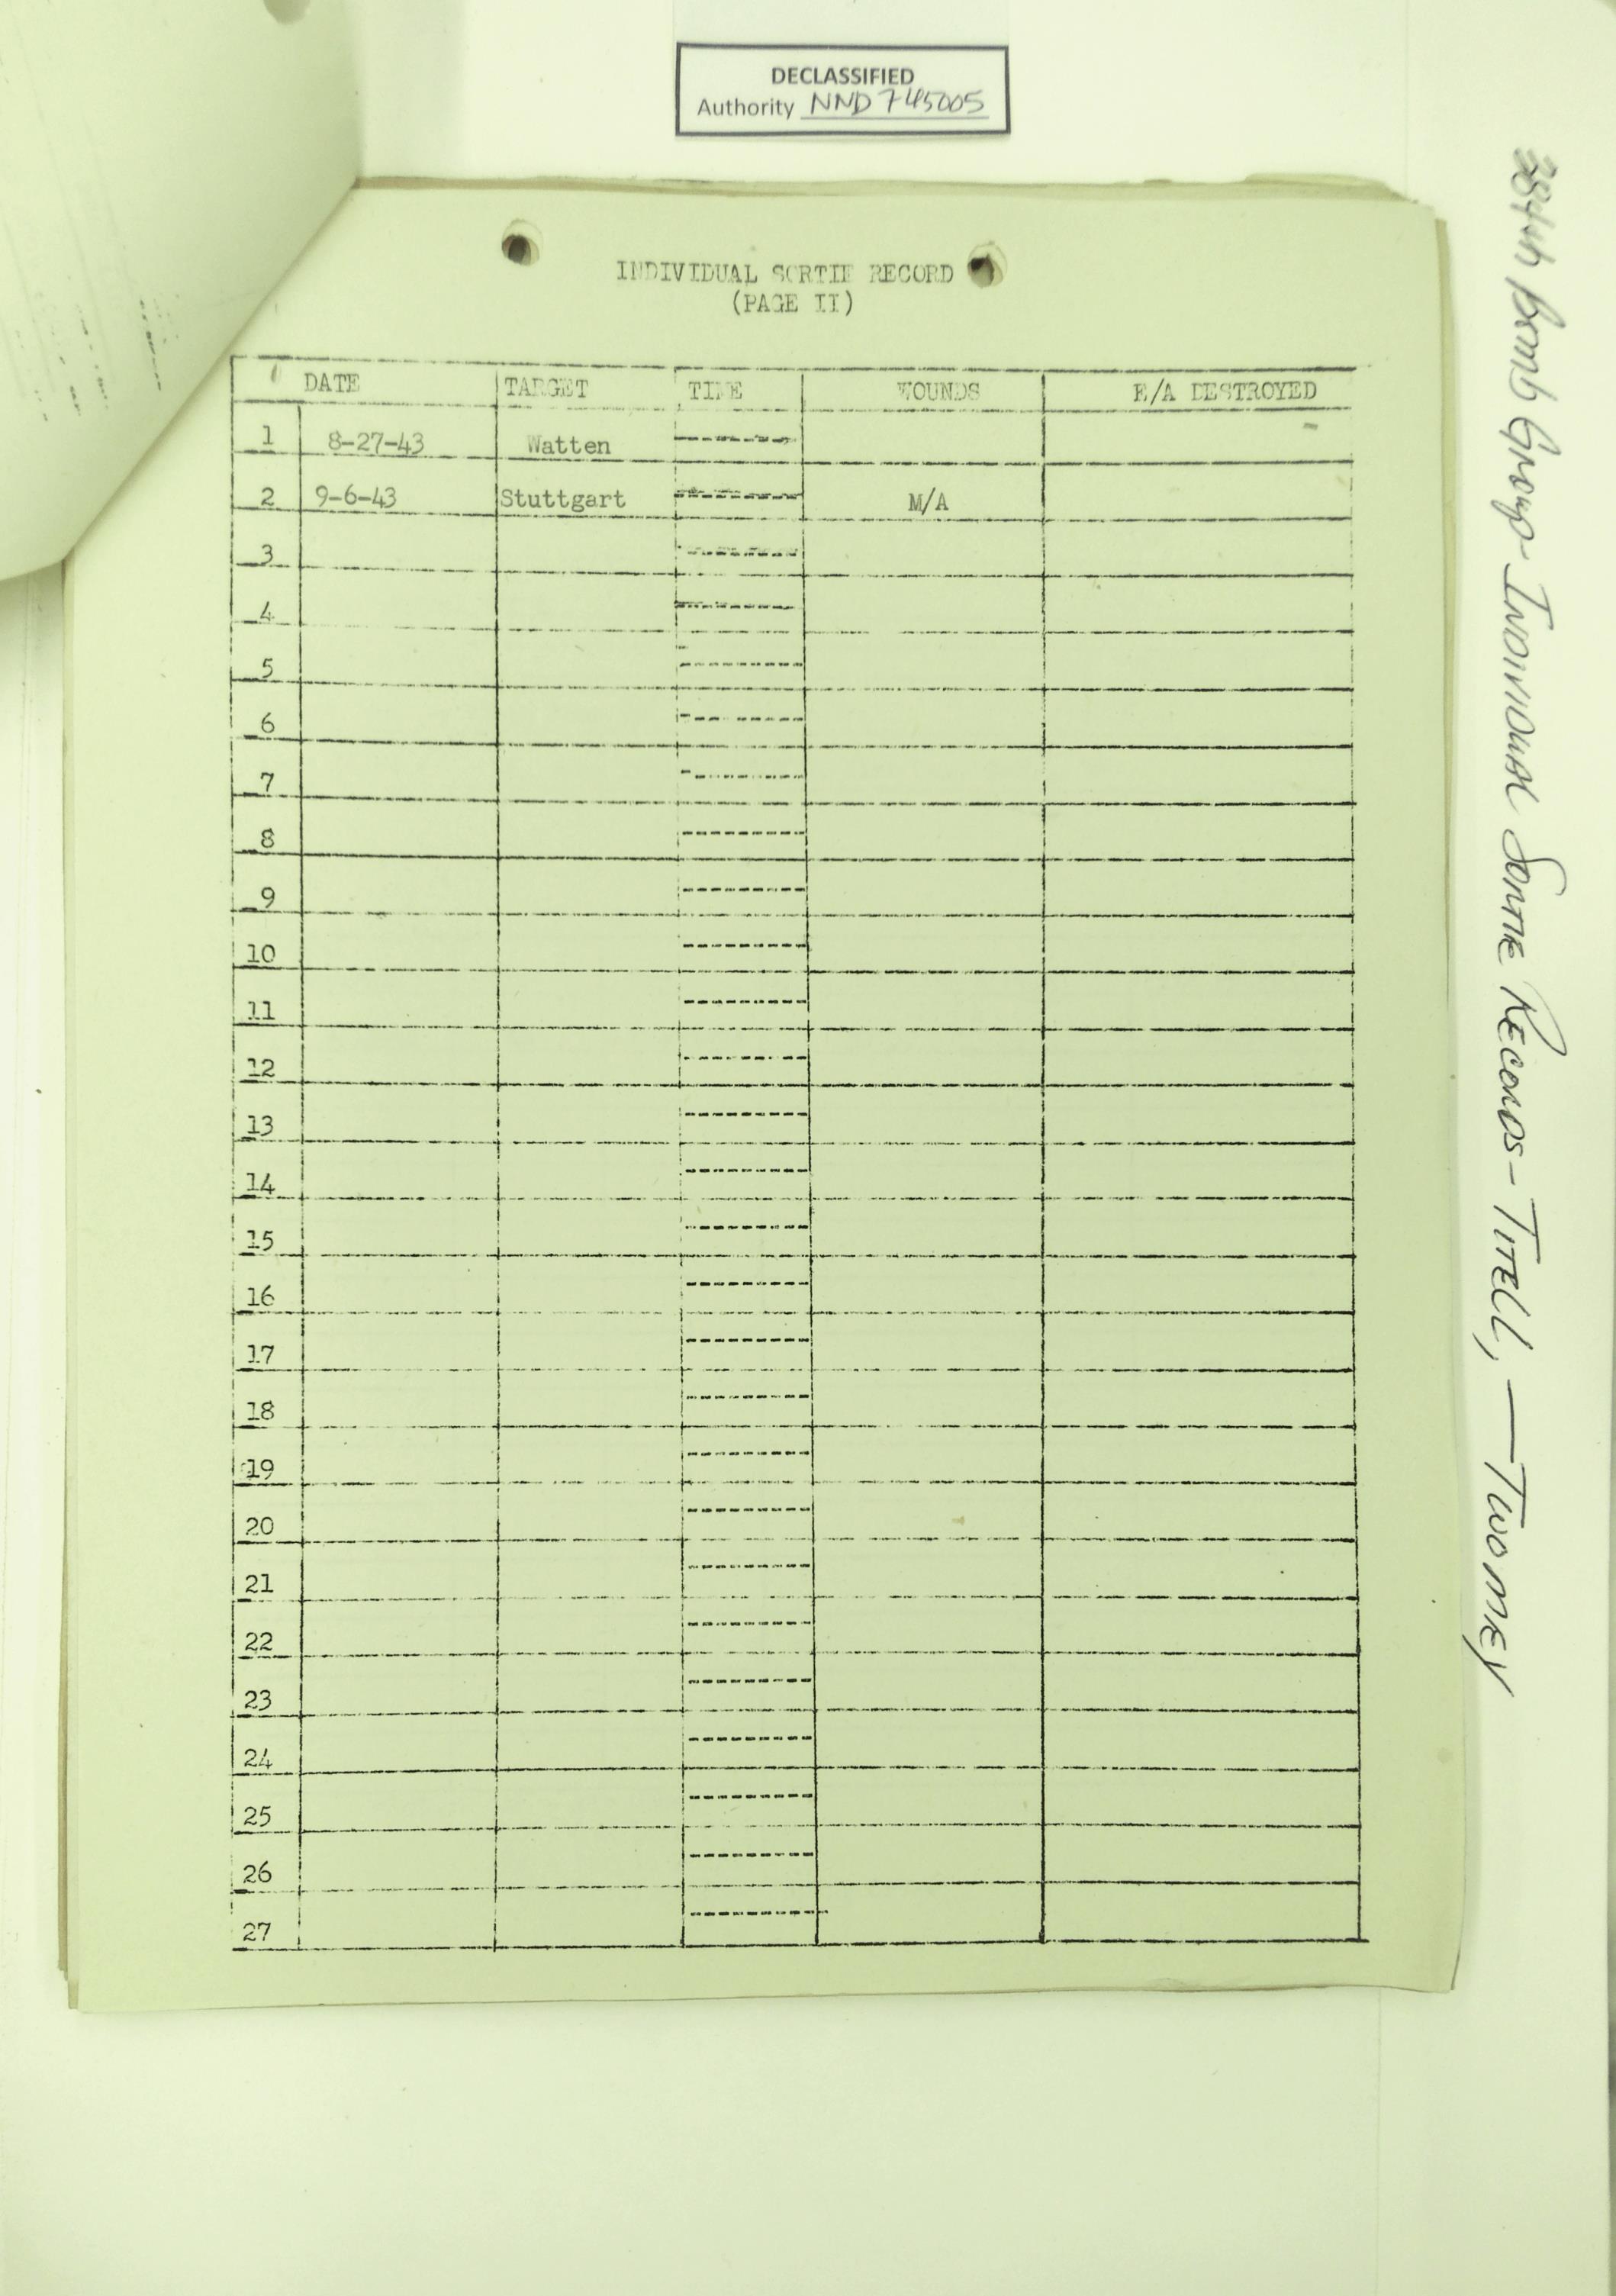 DECLASSIFIED
Authority NND 745005
INDIVIDUAL SORTIE RECORD
(PAGE II)
DATE TARGET TIME WOUNDS E/A DESTROYED
1 8-27-43 Watten
2 9-6-43 Stuttgart M/A
3
4
5
6
7
8
9
10
11
12
13
14
15
16
17
18
19
20
21
22
23
24
25
26
27
384th Bomb Group - INDIVIDUAL SORTIE RECORDS - TITELL, — TWOMEY